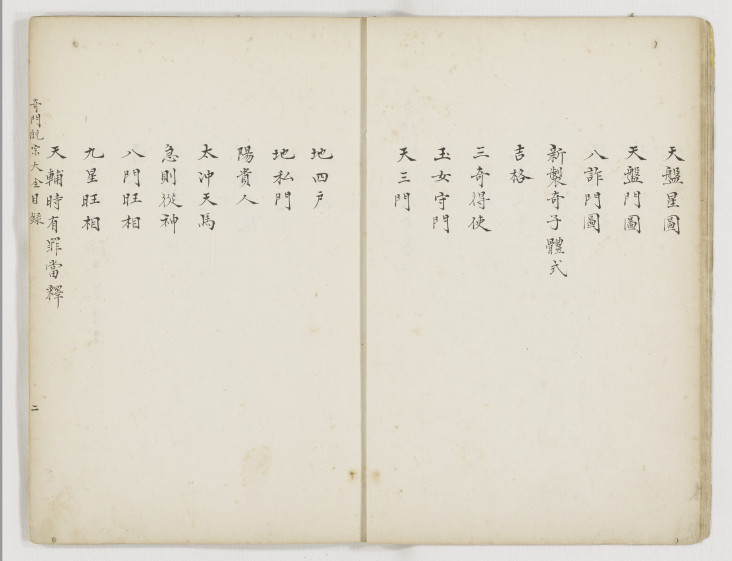 天盤星圖
天盤門圖
八詐門圖
新製奇子體式
吉格
三奇得使
玉女守門
天三門
地四户
地私門
陽賞人
太冲天馬
急則從神
八門旺相
九星旺相
天輔時有罪當釋
奇門説宗大全目録
二